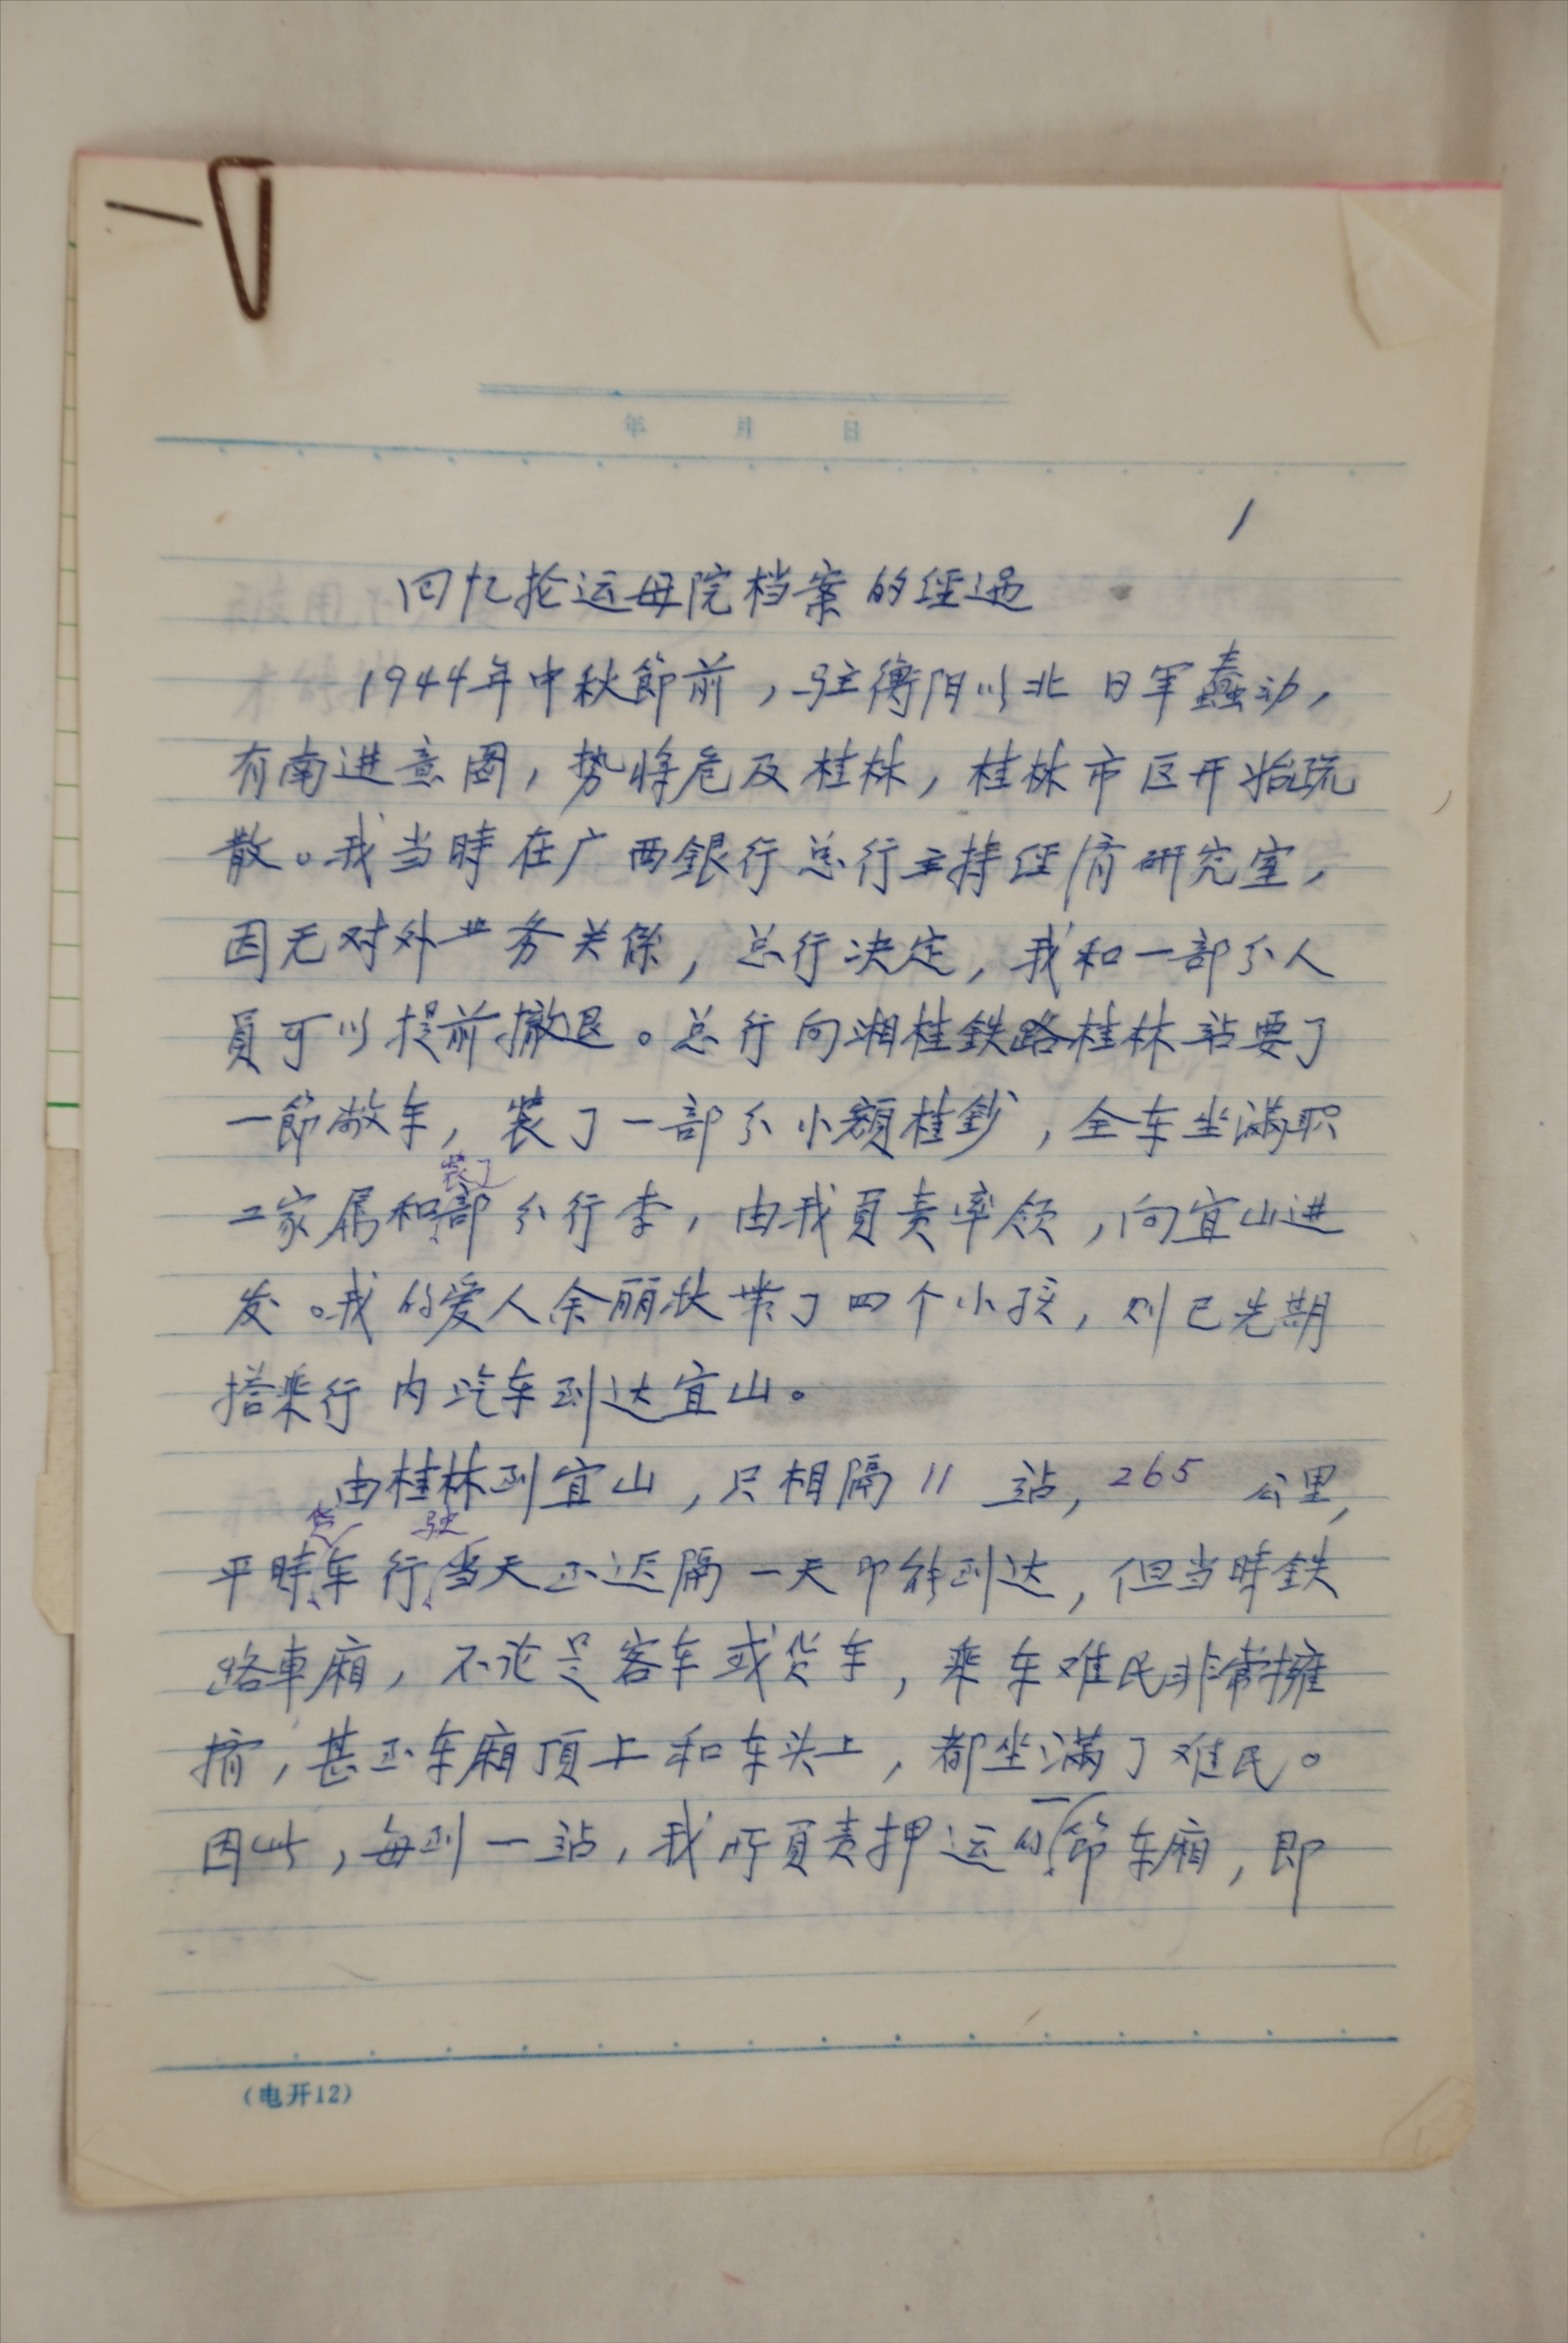 年 月 日
1
回忆抢运母院档案的经过
1944年中秋節前，驻衡阳以北日军蠢动，
有南进意图，势将危及桂林，桂林市区开始疏
散。我当時在广西銀行总行主持经济研究室，
因无对外业务关係，总行决定，我和一部分人
員可以提前撤退。总行向湘桂鉄路桂林站要了
一節敞车，装了一部分小额桂鈔，全车坐满职
工家属和装了部分行李，由我負责率领，向宜山进
发。我的爱人余丽狀带了四个小孩，则已先期
搭乘行内汽车到达宜山。
由桂林到宜山，只相隔11站，265公里，
平時货车行驶当天至迟隔一天即能到达，但当時鉄
路車廂，不论是客车或货车，乘车难民非常擁
挤，甚至车廂頂上和车头上，都坐满了难民。
因此，每到一站，我所負责押运的一節车廂，即
（电开12）